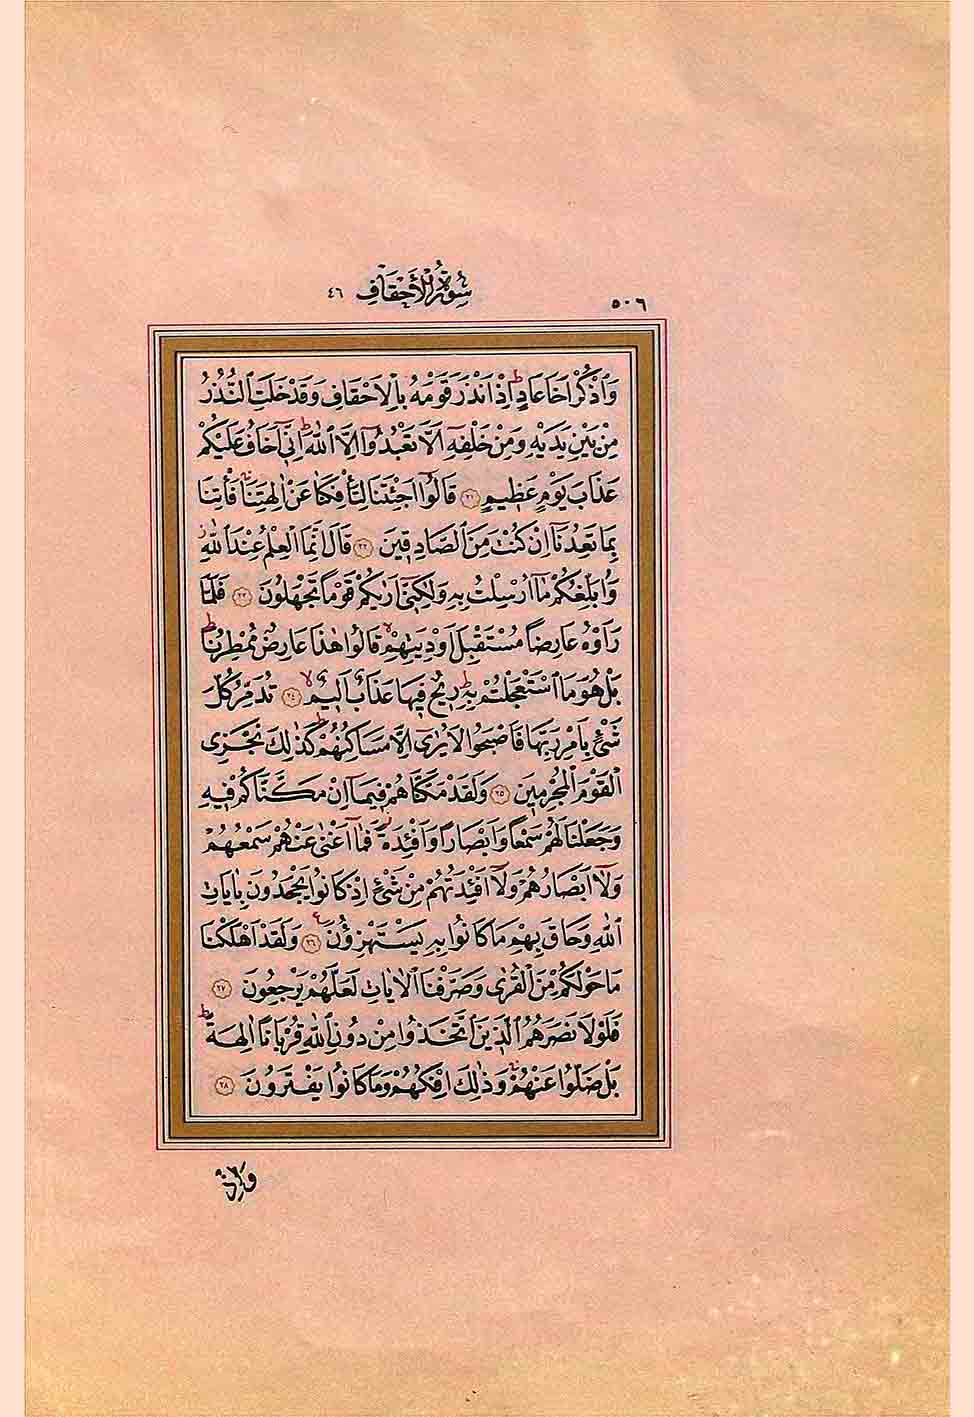 ٥٠٦ سُورَةُ الْأَحْقَافِ ٤٦
وَاذْكُرْ اَخَا عَادٍ اِذْ اَنْذَرَ قَوْمَهُ بِالْاَحْقَافِ وَقَدْ خَلَتِ النُّذُرُ
مِنْ بَيْنِ يَدَيْهِ وَمِنْ خَلْفِهٖٓ اَلَّا تَعْبُدُٓوا اِلَّا اللّٰهَ اِنّٖٓي اَخَافُ عَلَيْكُمْ
عَذَابَ يَوْمٍ عَظٖيمٍ ٢١ قَالُٓوا اَجِئْتَنَا لِتَأْفِكَنَا عَنْ اٰلِهَتِنَا فَأْتِنَا
بِمَا تَعِدُنَٓا اِنْ كُنْتَ مِنَ الصَّادِقٖينَ ٢٢ قَالَ اِنَّمَا الْعِلْمُ عِنْدَ اللّٰهِ
وَاُبَلِّغُكُمْ مَٓا اُرْسِلْتُ بِهٖ وَلٰكِنّٖٓي اَرٰيكُمْ قَوْمًا تَجْهَلُونَ ٢٣ فَلَمَّا
رَاَوْهُ عَارِضًا مُسْتَقْبِلَ اَوْدِيَتِهِمْ قَالُوا هٰذَا عَارِضٌ مُمْطِرُنَا
بَلْ هُوَ مَا اسْتَعْجَلْتُمْ بِهٖ رٖيحٌ فٖيهَا عَذَابٌ اَلٖيمٌ ٢٤ تُدَمِّرُ كُلَّ
شَيْءٍ بِاَمْرِ رَبِّهَا فَاَصْبَحُوا لَا يُرٰٓى اِلَّا مَسَاكِنُهُمْ كَذٰلِكَ نَجْزِي
الْقَوْمَ الْمُجْرِمٖينَ ٢٥ وَلَقَدْ مَكَّنَّاهُمْ فٖيمَٓا اِنْ مَكَّنَّاكُمْ فٖيهِ
وَجَعَلْنَا لَهُمْ سَمْعًا وَاَبْصَارًا وَاَفْـِٔدَةً فَمَٓا اَغْنٰى عَنْهُمْ سَمْعُهُمْ
وَلَٓا اَبْصَارُهُمْ وَلَٓا اَفْـِٔدَتُهُمْ مِنْ شَيْءٍ اِذْ كَانُوا يَجْحَدُونَ بِاٰيَاتِ
اللّٰهِ وَحَاقَ بِهِمْ مَا كَانُوا بِهٖ يَسْتَهْزِؤُنَ ٢٦ وَلَقَدْ اَهْلَكْنَا
مَا حَوْلَكُمْ مِنَ الْقُرٰى وَصَرَّفْنَا الْاٰيَاتِ لَعَلَّهُمْ يَرْجِعُونَ ٢٧
فَلَوْلَا نَصَرَهُمُ الَّذٖينَ اتَّخَذُوا مِنْ دُونِ اللّٰهِ قُرْبَانًا اٰلِهَةً
بَلْ ضَلُّوا عَنْهُمْ وَذٰلِكَ اِفْكُهُمْ وَمَا كَانُوا يَفْتَرُونَ ٢٨
وَاِذْ